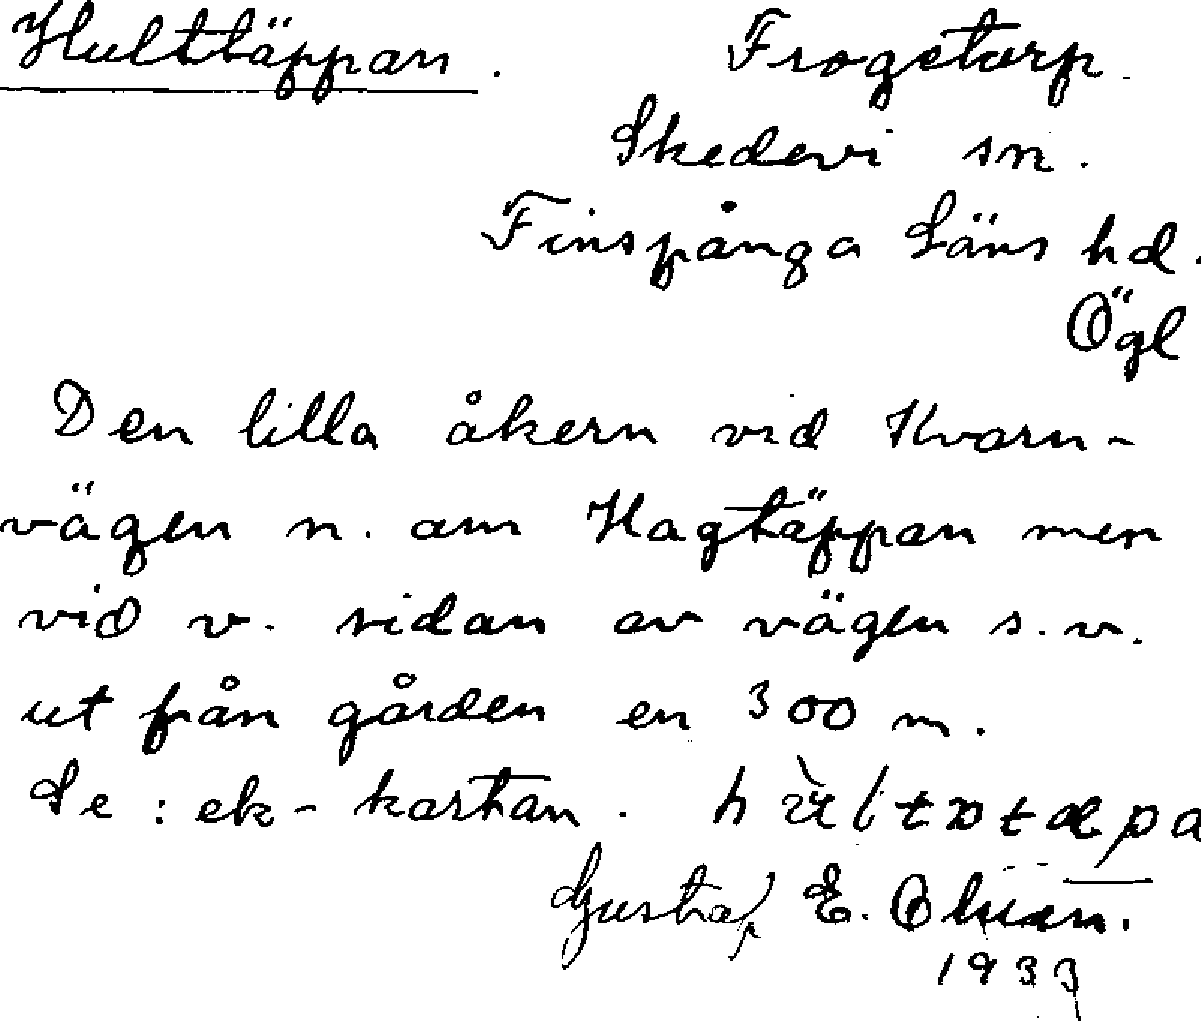 Hulttäppan. Frogstorp.
Skedevi sn.
Finspånga Läns hd.
Ögl
Den lilla åkern vid Kvarn-
vägen n. om Hagtäppan men
vid v. sidan av vägen s.v.
ut från gården en 300 m.
Se: ek-kartan.
Gustaf E.
1933